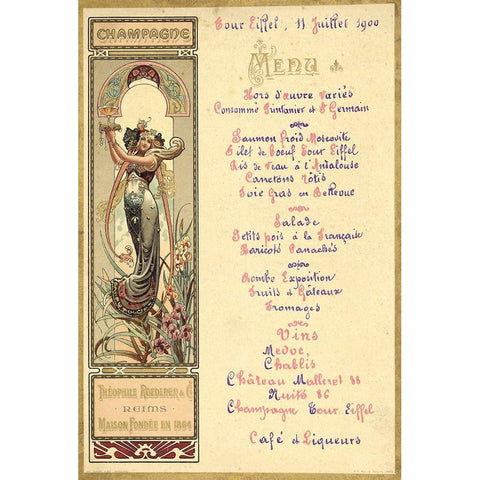 CHAMPAGNE
Tour Eiffel, 11 Juillet 1900
MENU
Hors d'Œuvre Variés
Consommé Printanier et St Germain
Saumon Froid Moscovite
Filet de Boeuf Tour Eiffel
Ris de Veau à l'Andalouse
Canetons Rôtis
Foie Gras en Bellevue
Salade
Petits pois à la Française
Haricots Panachés
Bombe Exposition
Fruits et Gâteaux
Fromages
Vins
Medoc,
Chablis
Château Malleret 88
Nuits 86
Champagne Tour Eiffel
Café et Liqueurs
THÉOPHILE ROEDERER & Co
REIMS
MAISON FONDÉE EN 1864